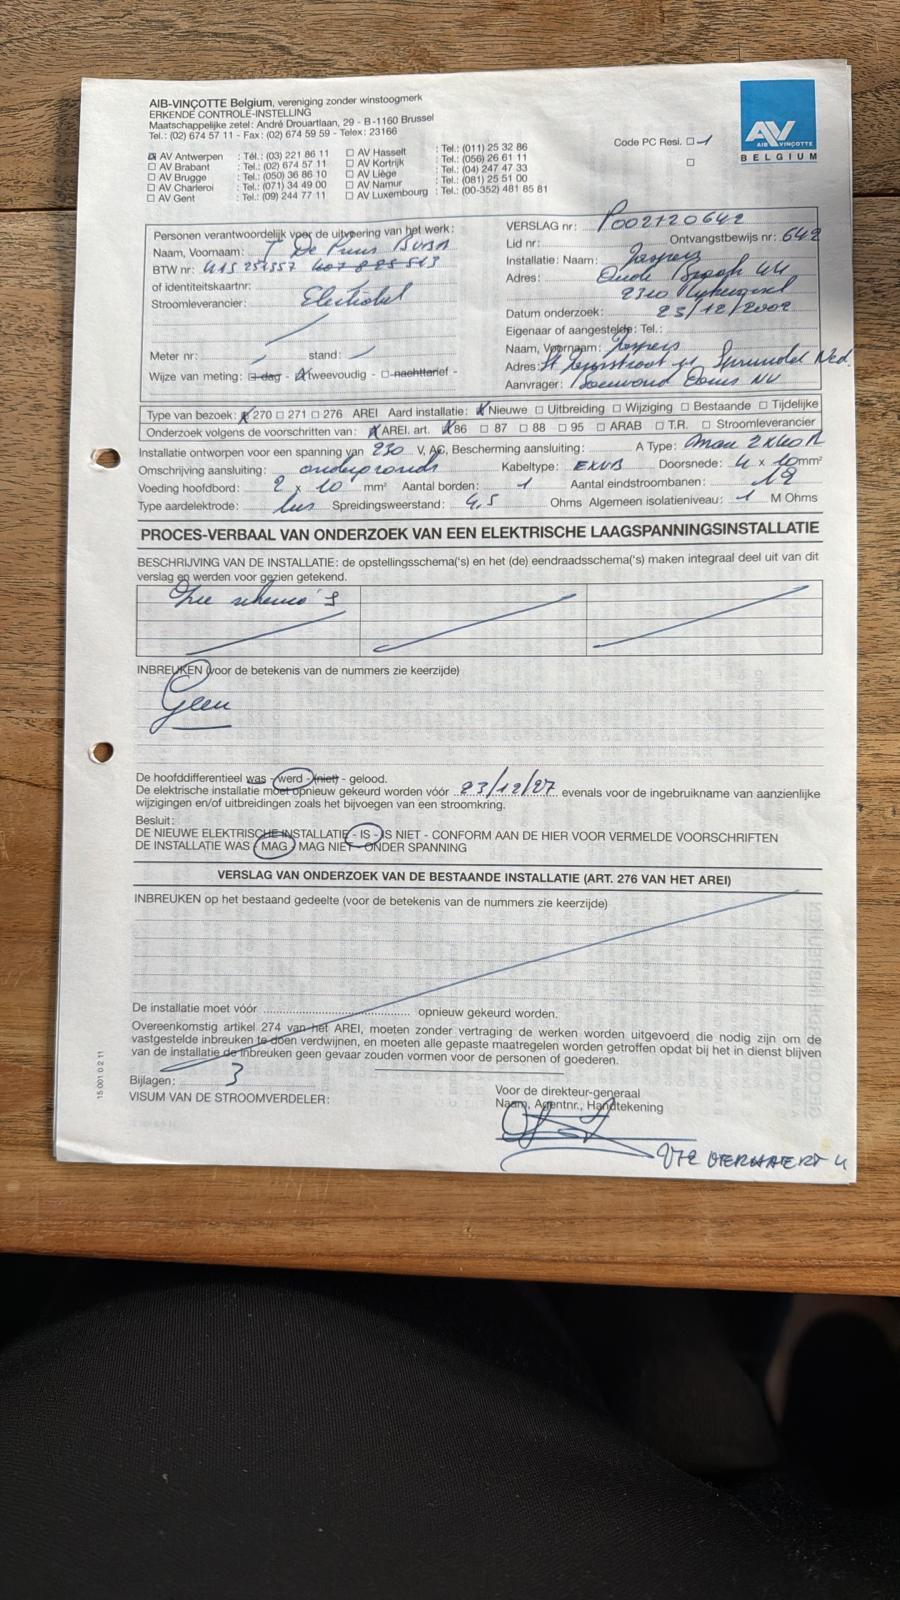 AIB-VINÇOTTE Belgium, vereniging zonder winstoogmerk
ERKENDE CONTROLE-INSTELLING
Maatschappelijke zetel: André Drouartlaan, 29 - B-1160 Brussel
Tel.: (02) 674 57 11 - Fax: (02) 674 59 59 - Telex: 23166
AV Antwerpen : Tél.: (03) 221 86 11 AV Hasselt : Tel.: (011) 25 32 86
AV Brabant : Tel.: (02) 674 57 11 AV Kortrijk : Tel.: (056) 26 61 11
AV Brugge : Tel.: (050) 36 86 10 AV Liège : Tel.: (04) 247 47 33
AV Charleroi : Tel.: (071) 34 49 00 AV Namur : Tel.: (081) 25 51 00
AV Gent : Tel.: (09) 244 77 11 AV Luxembourg : Tel.: (00-352) 481 85 81
Code PC Resi. 1
AV
AIB VINÇOTTE
BELGIUM
Personen verantwoordelijk voor de uitvoering van het werk:
Naam, Voornaam: De
BTW nr: 415 257357
of identiteitskaartnr:
Stroomleverancier: Electrabel
Meter nr: stand:
Wijze van meting: dag - tweevoudig - nachttarief -
VERSLAG nr: P002120642
Lid nr: Ontvangstbewijs nr: 642
Installatie: Naam: Jaspers
Adres: Oude 44
2310 Rijkevorsel
Datum onderzoek: 23/12/2002
Eigenaar of aangestelde: Tel.:
Naam, Voornaam: Jaspers
Adres: St Sprundel Ned.
Aanvrager: NV
Type van bezoek: 270 271 276 AREI Aard installatie: Nieuwe Uitbreiding Wijziging Bestaande Tijdelijke
Onderzoek volgens de voorschriften van: AREI. art. 86 87 88 95 ARAB T.R. Stroomleverancier
Installatie ontworpen voor een spanning van 230 V, AC, Bescherming aansluiting: A Type: 2x40A
Omschrijving aansluiting: ondergronds Kabeltype: EXVB Doorsnede: 4 x 10 mm²
Voeding hoofdbord: 2 x 10 mm² Aantal borden: 1 Aantal eindstroombanen: 19
Type aardelektrode: lus Spreidingsweerstand: 4,5 Ohms Algemeen isolatieniveau: 1 M Ohms
PROCES-VERBAAL VAN ONDERZOEK VAN EEN ELEKTRISCHE LAAGSPANNINGSINSTALLATIE
BESCHRIJVING VAN DE INSTALLATIE: de opstellingsschema('s) en het (de) eendraadsschema('s) maken integraal deel uit van dit
verslag en werden voor gezien getekend.
Zie schema's
INBREUKEN (voor de betekenis van de nummers zie keerzijde)
Geen
De hoofddifferentieel was - werd - (niet) - gelood.
De elektrische installatie moet opnieuw gekeurd worden vóór 23/12/27 evenals voor de ingebruikname van aanzienlijke
wijzigingen en/of uitbreidingen zoals het bijvoegen van een stroomkring.
Besluit:
DE NIEUWE ELEKTRISCHE INSTALLATIE - IS - IS NIET - CONFORM AAN DE HIER VOOR VERMELDE VOORSCHRIFTEN
DE INSTALLATIE WAS MAG MAG NIET - ONDER SPANNING
VERSLAG VAN ONDERZOEK VAN DE BESTAANDE INSTALLATIE (ART. 276 VAN HET AREI)
INBREUKEN op het bestaand gedeelte (voor de betekenis van de nummers zie keerzijde)
De installatie moet vóór ........ opnieuw gekeurd worden.
Overeenkomstig artikel 274 van het AREI, moeten zonder vertraging de werken worden uitgevoerd die nodig zijn om de
vastgestelde inbreuken te doen verdwijnen, en moeten alle gepaste maatregelen worden getroffen opdat bij het in dienst blijven
van de installatie de inbreuken geen gevaar zouden vormen voor de personen of goederen.
Bijlagen: 3
VISUM VAN DE STROOMVERDELER:
Voor de direkteur-generaal
Naam, Agentnr., Handtekening
15 001 0 2 11